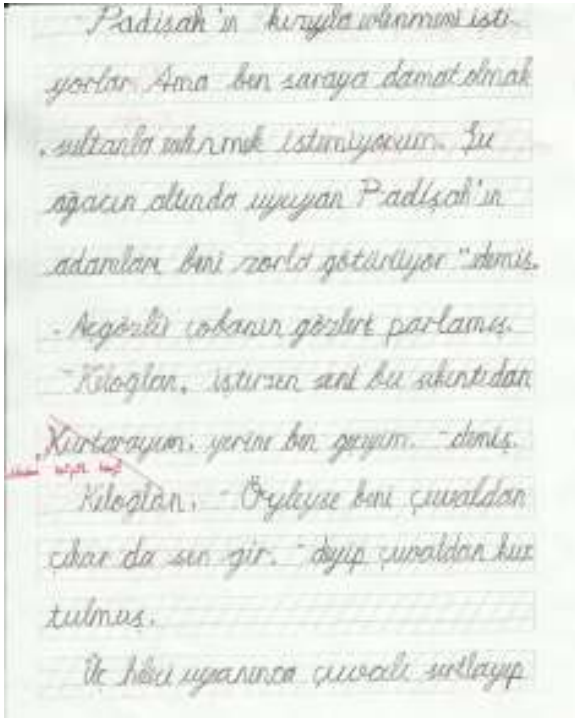 - Padişah'ın kızıyla evlenmemi isti-
yorlar. Ama ben saraya damat olmak
sultanla evlenmek istemiyorum. Şu
ağacın altında uyuyan Padişah'ın
adamları beni zorla götürüyor" demiş.
- Açgözlü çobanın gözleri parlamış.
- Keloğlan, istersen seni bu sıkıntıdan
Kurtarayım, yerine ben gireyim. - demiş.
Keloğlan, - Öyleyse beni çuvaldan
çıkar da sen gir. - deyip çuvaldan kur
tulmuş.
Üç hileci uyanınca çuvalı sırtlayıp